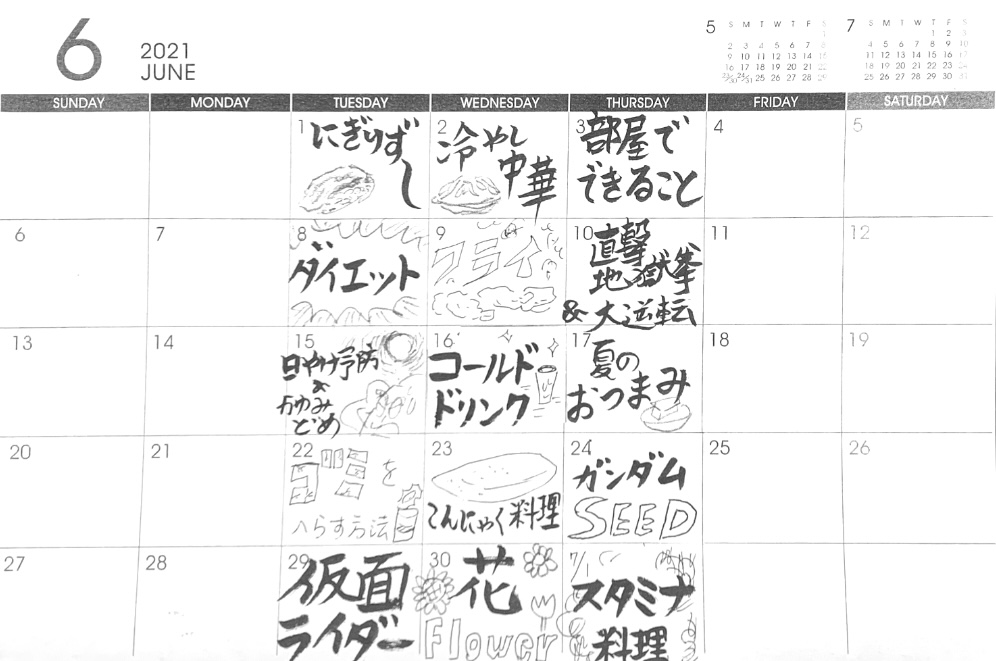 6
2021
JUNE
5
S M T W T F S
1
2 3 4 5 6 7 8
9 10 11 12 13 14 15
16 17 18 19 20 21 22
23/30 24/31 25 26 27 28 29
7
S M T W T F S
1 2 3
4 5 6 7 8 9 10
11 12 13 14 15 16 17
18 19 20 21 22 23 24
25 26 27 28 29 30 31
SUNDAY MONDAY TUESDAY WEDNESDAY THURSDAY FRIDAY SATURDAY
1
にぎりず
し
2
冷やし
中華
3
部屋で
できること
4
5
6
7
8
ダイエット
9
フライ
10
直撃
地獄拳
& 大逆転
11
12
13
14
15
日やけ予防
&
かゆみ
どめ
16
コールド
ドリンク
17
夏の
おつまみ
18
19
20
21
22
を
へらす方法
23
こんにゃく料理
24
ガンダム
SEED
25
26
27
28
29
仮面
ライダー
30
花
Flower
7/1
スタミナ
料理